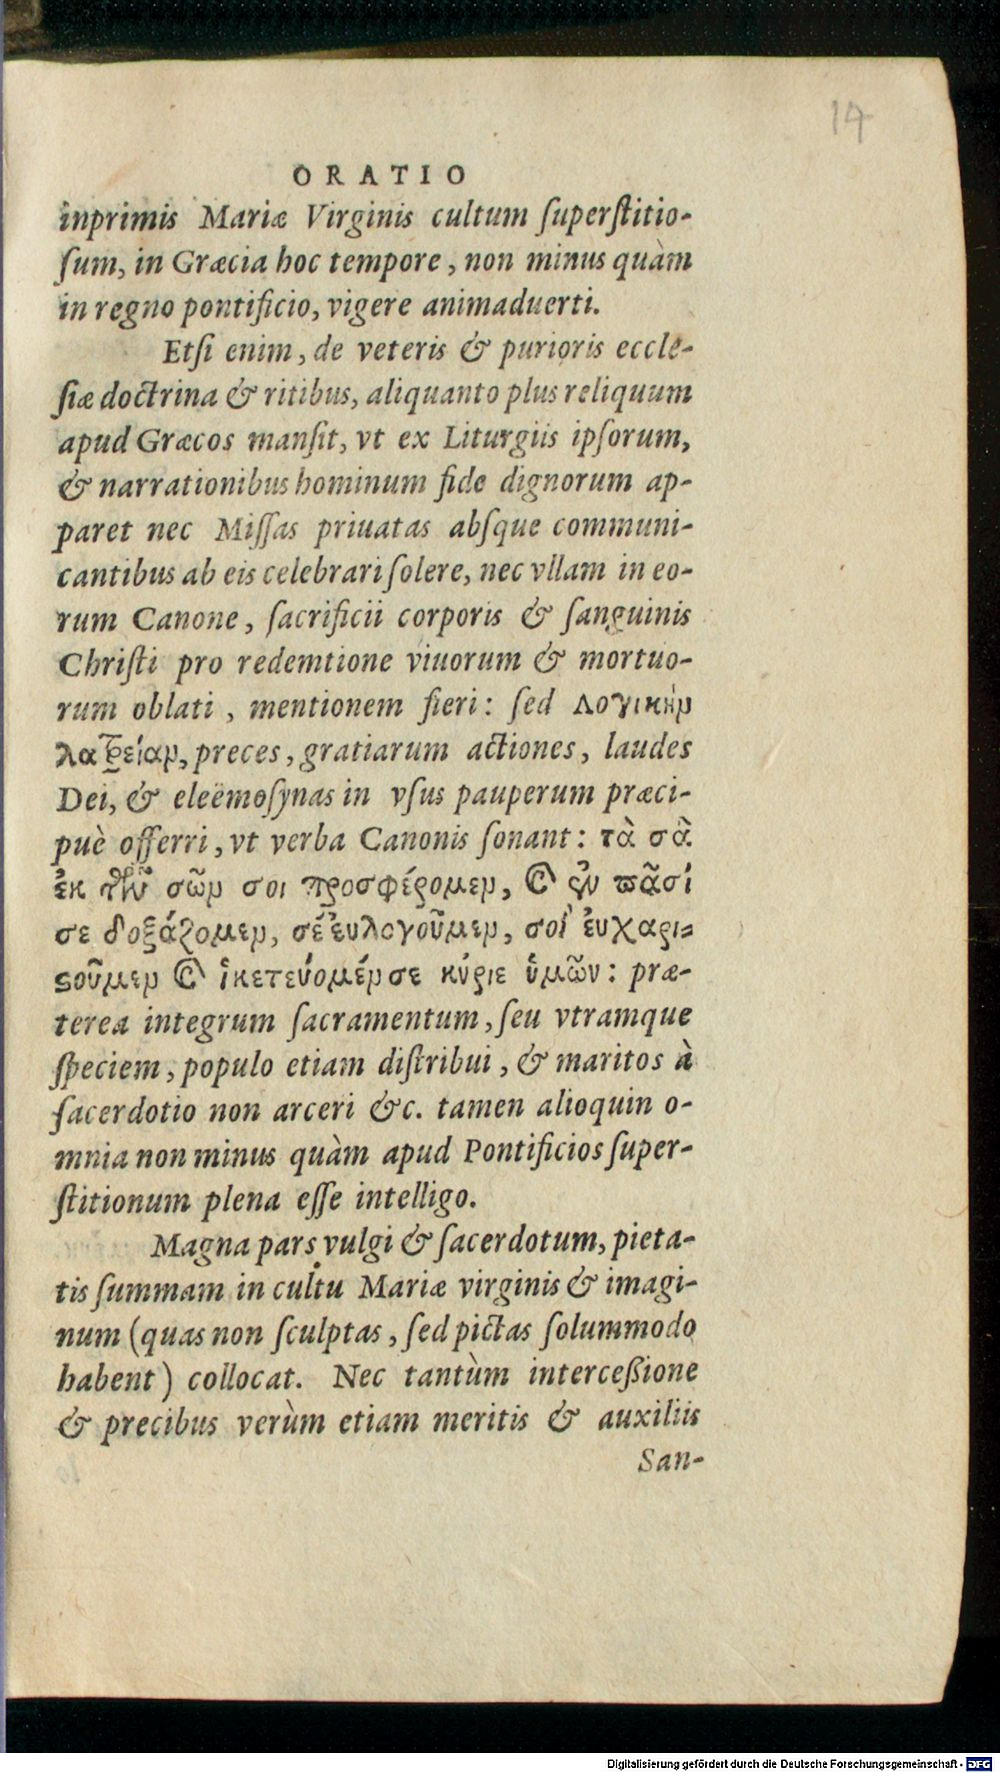 14
ORATIO
inprimis Mariæ Virginis cultum ſuperſtitio-
ſum, in Græcia hoc tempore, non minus quàm
in regno pontificio, vigere animaduerti.
Etſi enim, de veteris & purioris eccle-
ſiæ doctrina & ritibus, aliquanto plus reliquum
apud Græcos manſit, vt ex Liturgiis ipſorum,
& narrationibus hominum fide dignorum ap-
paret nec Miſſas priuatas abſque communi-
cantibus ab eis celebrari ſolere, nec vllam in eo-
rum Canone, ſacrificii corporis & ſanguinis
Chriſti pro redemtione viuorum & mortuo-
rum oblati, mentionem fieri: ſed λογικὴν
λατρείαν, preces, gratiarum actiones, laudes
Dei, & eleëmoſynas in vſus pauperum præci-
puè offerri, vt verba Canonis ſonant: τὰ σὰ
ἐκ τῶν σῶν σοι προσφέρομεν, καὶ ἐν πᾶσί
σε δοξάζομεν, σέ ἐυλογοῦμεν, σοὶ ἐυχαρι-
ςοῦμεν καὶ ἱκετεύομέν σε κύριε ὑμῶν: præ-
terea integrum ſacramentum, ſeu vtramque
ſpeciem, populo etiam diſtribui, & maritos à
ſacerdotio non arceri &c. tamen alioquin o-
mnia non minus quàm apud Pontificios ſuper-
ſtitionum plena eſſe intelligo.
Magna pars vulgi & ſacerdotum, pieta-
tis ſummam in cultu Mariæ virginis & imagi-
num (quas non ſculptas, ſed pictas ſolummodo
habent) collocat. Nec tantùm interceßione
& precibus verùm etiam meritis & auxiliis
San-
Digitalisierung gefördert durch die Deutsche Forschungsgemeinschaft - DFG